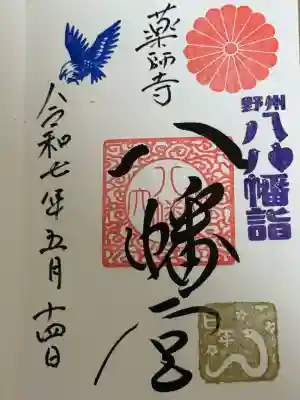 野州
八八幡詣
薬師寺
八幡宮
巳年
令和七年五月十四日